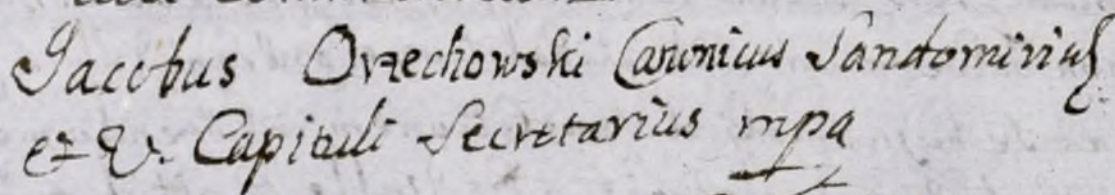 Jacobus Orzechowski Canonicus Sandomirien
et V. Capituli Secretarius mpa